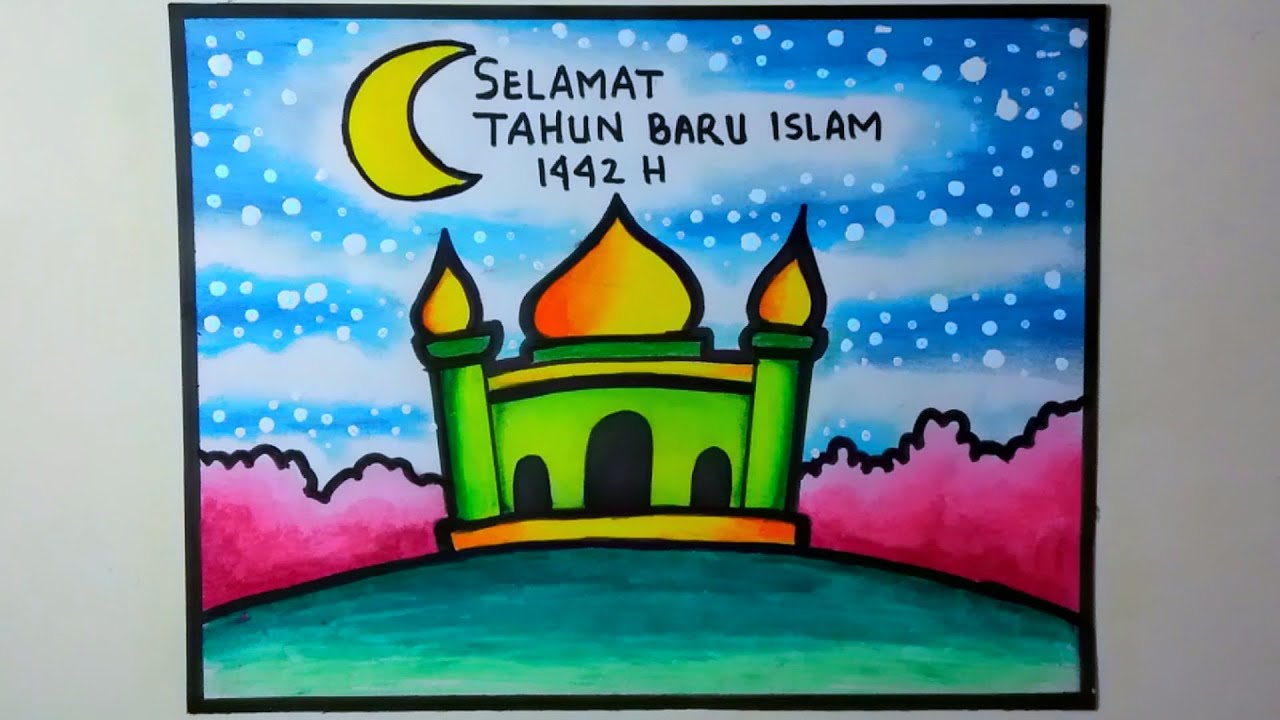 SELAMAT
TAHUN BARU ISLAM
1442 H